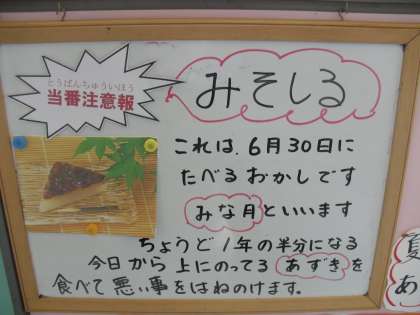 とうばんちゅういほう
当番注意報
みそしる
これは、6月30日に
たべるおかしです
みな月といいます
ちょうど1年の半分になる
今日から上にのってるあずきを
食べて悪い事をはねのけます。
夏
あ